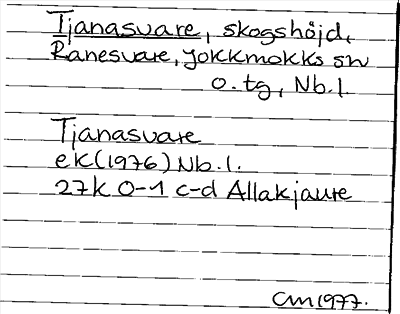 Tjanasvare, skogshöjd,
Ranesvare, Jokkmokks sn
o. tg, Nb.l.
Tjanasvare
ek(1976) Nb.l.
27K 0-1 c-d Allakjaure
CM 1977.